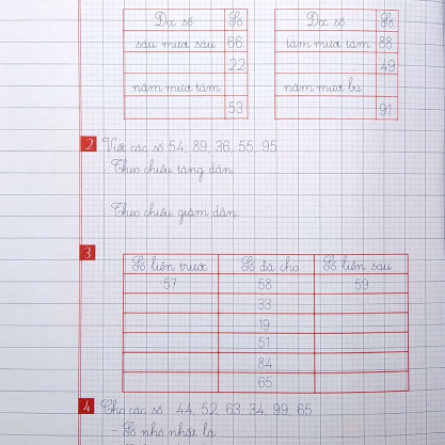 Đọc số Số Đọc số Số
sáu mươi sáu 66 tám mươi tám 88
22 49
năm mươi tám năm mươi ba
53 91
2 Viết các số 54, 89, 36, 55, 95
- Theo chiều tăng dần
- Theo chiều giảm dần
3
Số liền trước Số đã cho Số liền sau
57 58 59
33
19
51
84
65
4 Cho các số : 44, 52, 63, 34, 99, 65
- Số nhỏ nhất là